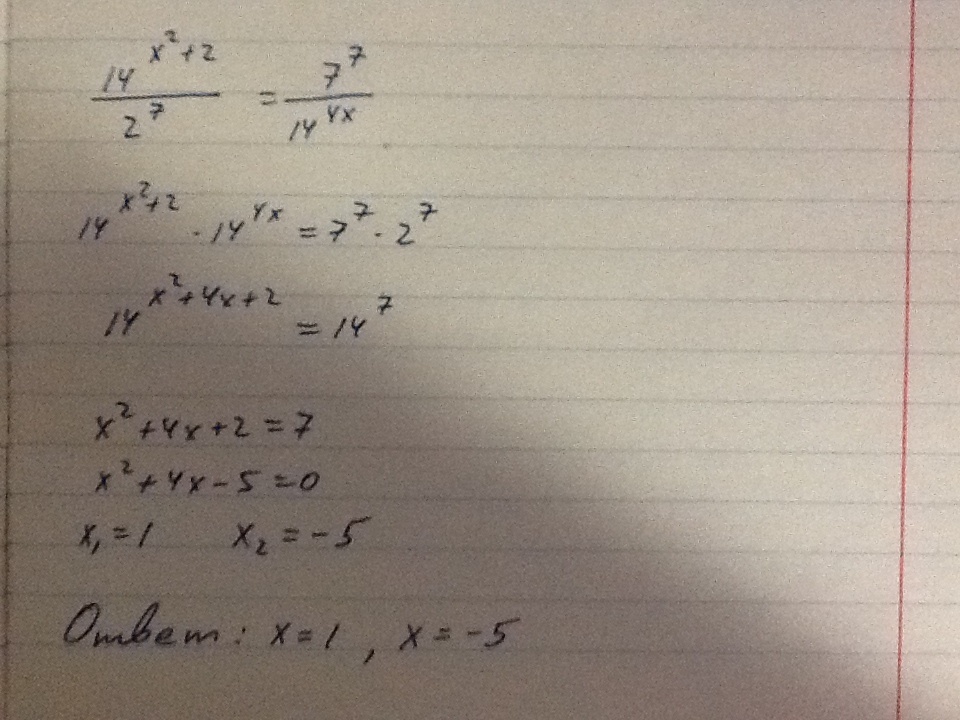 14^(x²+2) / 2^7 = 7^7 / 14^(4x)
14^(x²+2) · 14^(4x) = 7^7 · 2^7
14^(x²+4x+2) = 14^7
x²+4x+2=7
x²+4x-5=0
x₁=1 x₂=-5
Ответ: x=1, x=-5